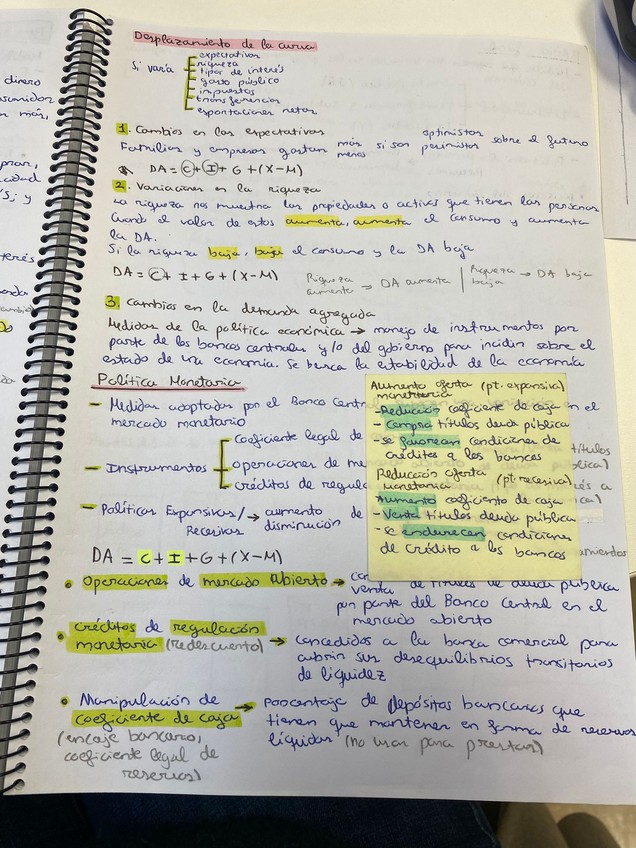 Desplazamiento de la curva
Si varía
expectativas
riqueza
tipos de interés
gasto público
impuestos
transferencias
exportaciones netas
1. Cambios en las expectativas
Familias y empresas gastan más si son optimistas sobre el futuro
menos pesimistas
DA = C + I + G + (X-M)
2. Variaciones en la riqueza
La riqueza nos muestra las propiedades o activos que tienen las personas
Cuando el valor de estos aumenta, aumenta el consumo y aumenta
la DA.
Si la riqueza baja, baja el consumo y la DA baja
DA = C + I + G + (X-M)
Riqueza aumenta → DA aumenta | Riqueza baja → DA baja
3. Cambios en la demanda agregada
Medidas de la política económica → manejo de instrumentos por
parte de los bancos centrales y/o del gobierno para incidir sobre el
estado de una economía. Se busca la estabilidad de la economía
Política Monetaria
- Medidas adoptadas por el Banco Centr
en el
mercado monetario
- Instrumentos
coeficiente legal de
operaciones de me
créditos de regula
títulos
pública)
- Políticas Expansivas/Recesivas → aumento de
disminución
DA = C + I + G + (X-M)
• Operaciones de mercado abierto →
venta de títulos de deuda pública
por parte del Banco Central en el
mercado abierto
• créditos de regulación
monetaria (redescuento) → concedidos a la banca comercial para
cubrir sus desequilibrios transitorios
de liquidez
• Manipulación de
coeficiente de caja
(encaje bancario,
coeficiente legal de
reservas)
→ porcentaje de depósitos bancarios que
tienen que mantener en forma de reservas
líquidas (no usar para prestar)
Aumento oferta (pt. expansiva)
monetaria
- Reducción coeficiente de caja
- Compra títulos deuda pública
- se favorecen condiciones de
créditos a los bancos
Reducción oferta (pt. recesiva)
monetaria
Aumento coeficiente de caja
- Venta títulos deuda pública
- se endurecen condiciones
de crédito a los bancos
dinero
más,